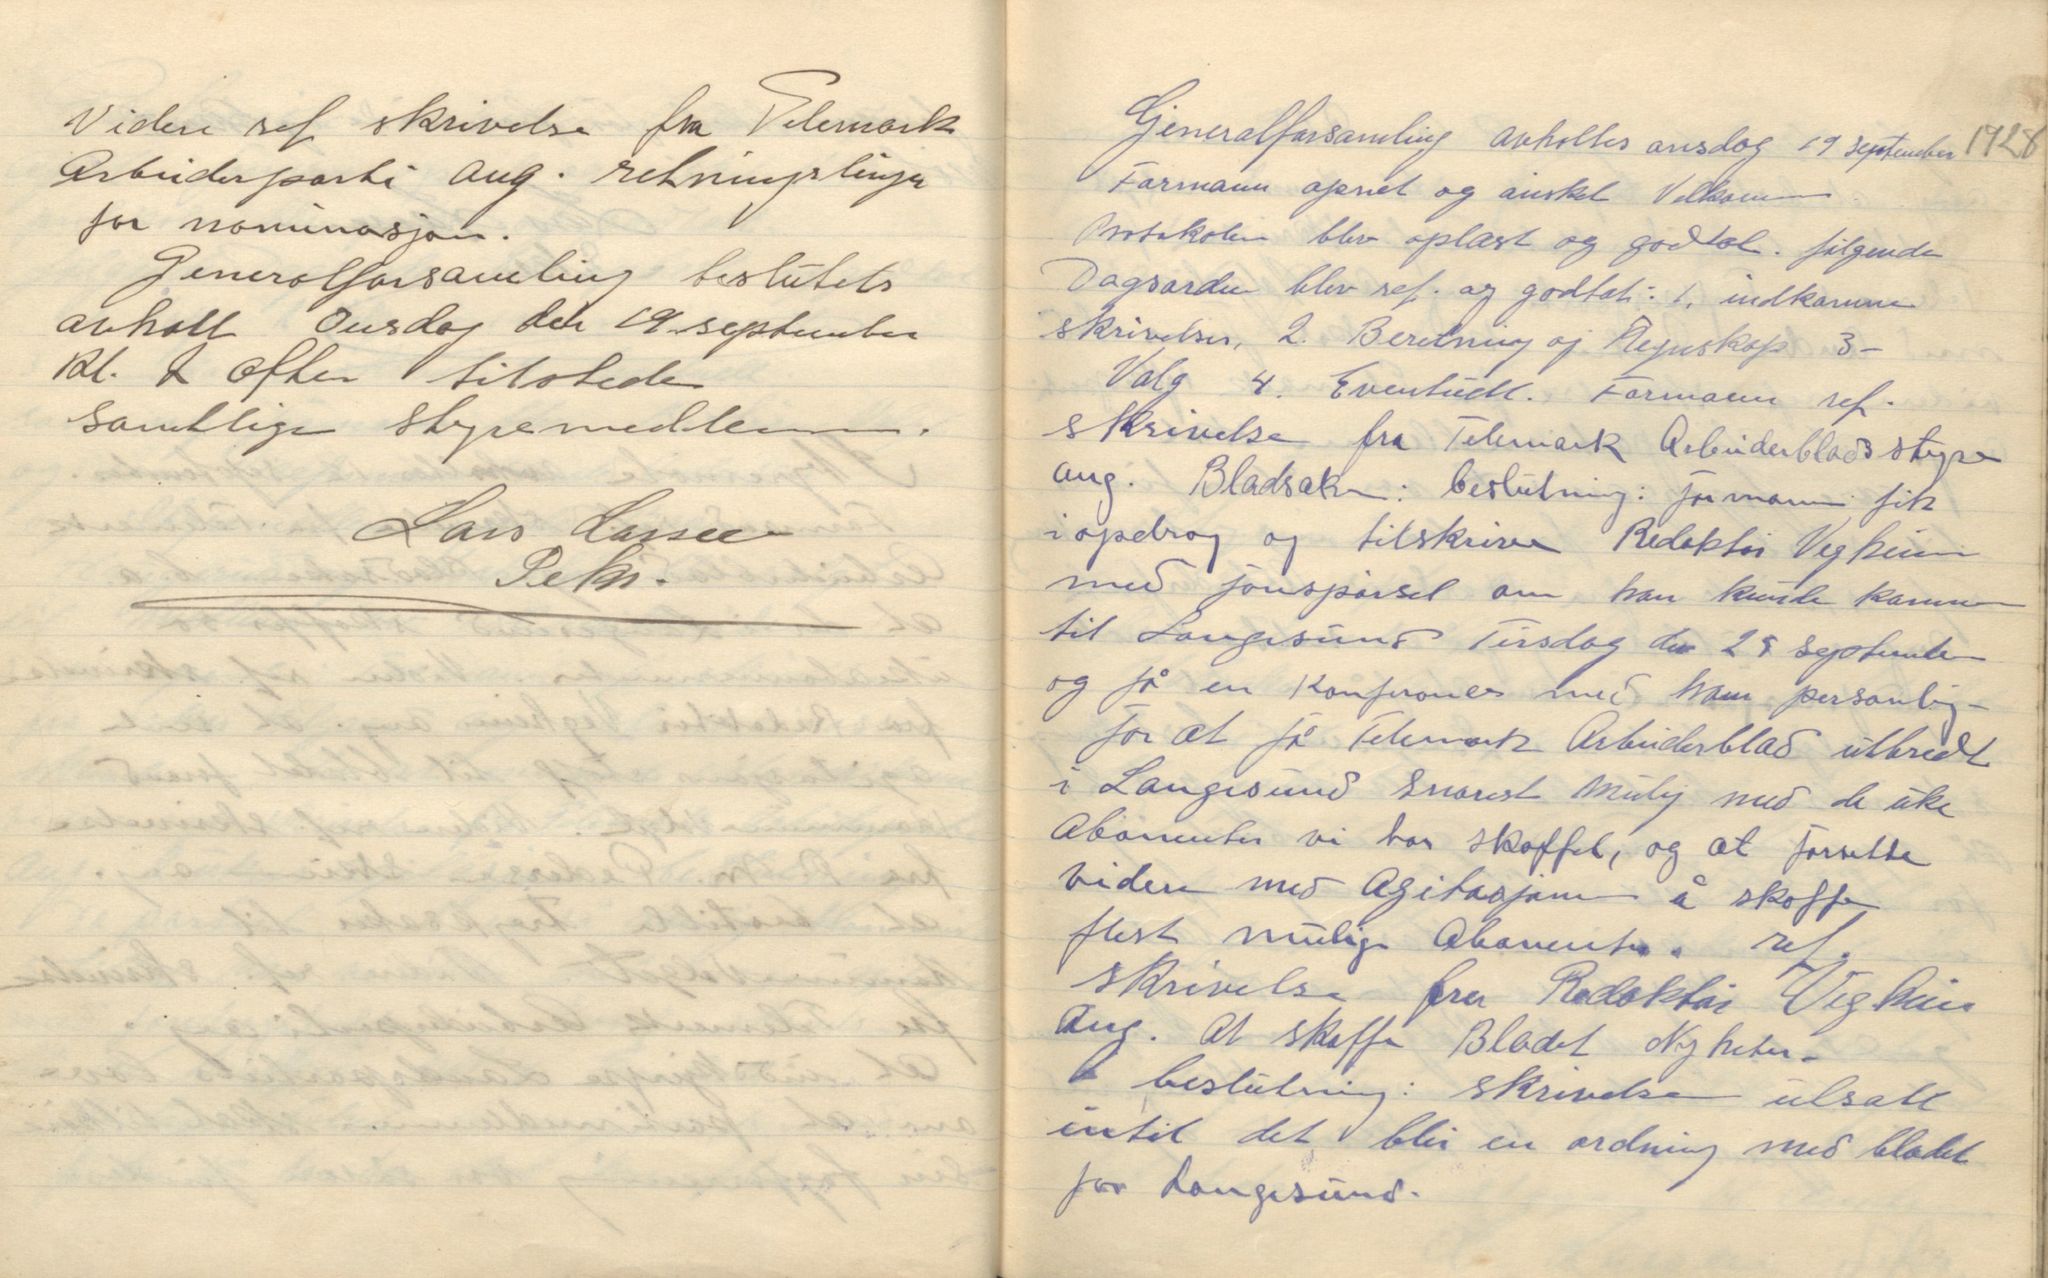 Videre ref skrivelse fra Telemark
Arbeiderparti ang. retningslinjer
for nominasjon.
Generalforsamling beslutets
avholt Onsdag den 19 september
kl. 7 Often tilstede
samtlige styremedlemmer.
Lars Larsen
Sekr.
Generalforsamling avholtes onsdag 19 september 1928
Formann opnet og ønsket Velkommen
Protokolen blev oplæst og godtat. følgende
Dagsorden blev ref. og godtat: 1. indkomne
skrivelser, 2. Beretning og Regnskap 3-
Valg 4. Eventuelt. Formann ref.
skrivelse fra Telemark Arbeiderblads styre
ang. Bladsaken: beslutning: formann fik
i opdrag og tilskrive Redaktør Vegheim
med forespørsel om han kunde komme
til Langesund Tirsdag den 25 september
og få en Konferanse med ham personlig-
for at få Telemark Arbeiderblad utbredt
i Langesund snarest mulig med de uke
Abonenter vi har skaffet, og at forsette
videre med Agitasjonen å skaffe
flest mulige Abonenter. ref.
skrivelse fra Redaktør Vegheim
ang. at skaffe Bladet Nyheter-
beslutning: skrivelsen utsatt
intil det blir en ordning med bladet
for Langesund.